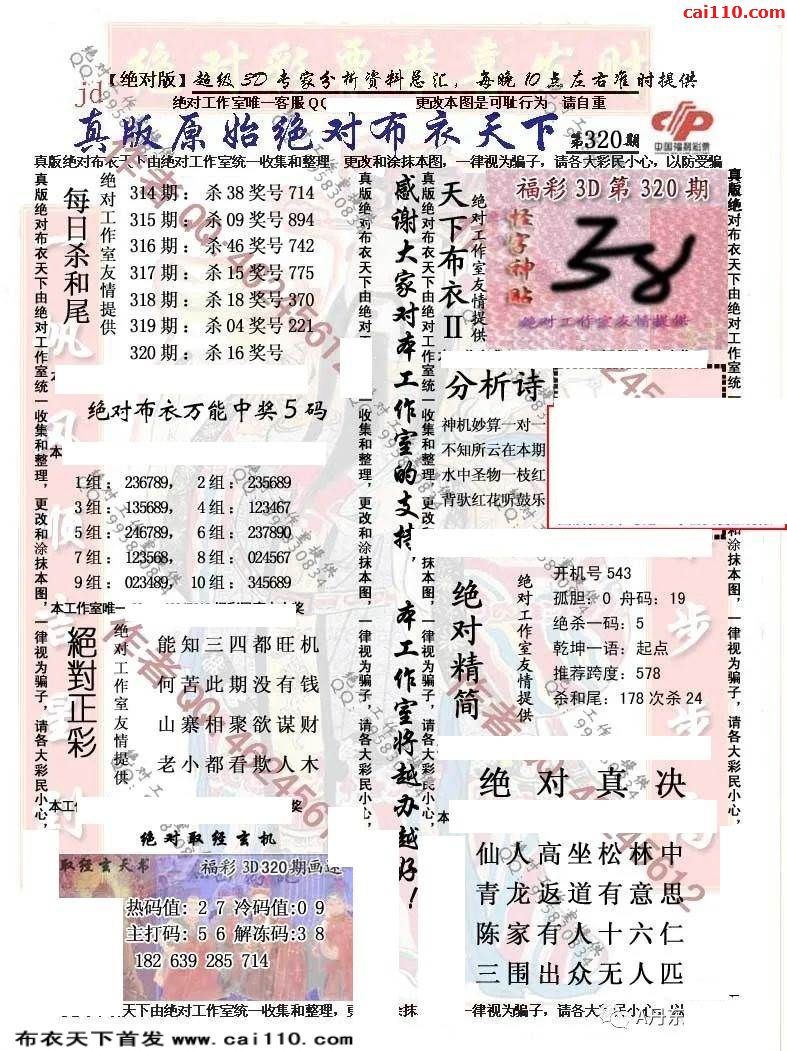 cai110.com
【绝对版】超级3D专家分析资料总汇，每晚10点左右准时提供
jd
绝对工作室唯一客服QQ 更改本图是可耻行为 请自重
真版原始绝对布衣天下 第320期
中国福利彩票
真版绝对布衣天下由绝对工作室统一收集和整理，更改和涂抹本图，一律视为骗子，请各大彩民小心，以防受骗
每日杀和尾
绝对工作室友情提供
314期：杀38奖号714
315期：杀09奖号894
316期：杀46奖号742
317期：杀15奖号775
318期：杀18奖号370
319期：杀04奖号221
320期：杀16奖号
绝对布衣万能中奖5码
1组：236789， 2组：235689
3组：135689， 4组：123467
5组：246789， 6组：237890
7组：123568， 8组：024567
9组：023489， 10组：345689
本工作室唯一
絕對正彩
绝对工作室友情提供
能知三四都旺机
何苦此期没有钱
山寨相聚欲谋财
老小都看欺人木
绝对取经玄机
取经玄天书 福彩3D320期画迷
热码值：2 7 冷码值：0 9
主打码：5 6 解冻码：3 8
182 639 285 714
感谢大家对本工作室的支持，本工作室将越办越好！
天下布衣II
绝对工作室友情提供
福彩3D第320期
怪字神贴
绝对工作室友情提供
分析诗
神机妙算一对一
不知所云在本期
水中圣物一枝红
背驮红花听鼓乐
绝对精简
绝对工作室友情提供
开机号543
孤胆：0 舟码：19
绝杀一码：5
乾坤一语：起点
推荐跨度：578
杀和尾：178次杀24
绝对真决
仙人高坐松林中
青龙返道有意思
陈家有人十六仁
三围出众无人匹
真版绝对布衣天下由绝对工作室统一收集和整理，更改和涂抹本图，一律视为骗子，请各大彩民小心，
布衣天下由绝对工作室统一收集和整理，更 涂抹本图，一律视为骗子，请各大彩民小心，以
A丹东
布衣天下首发 www.cai110.com